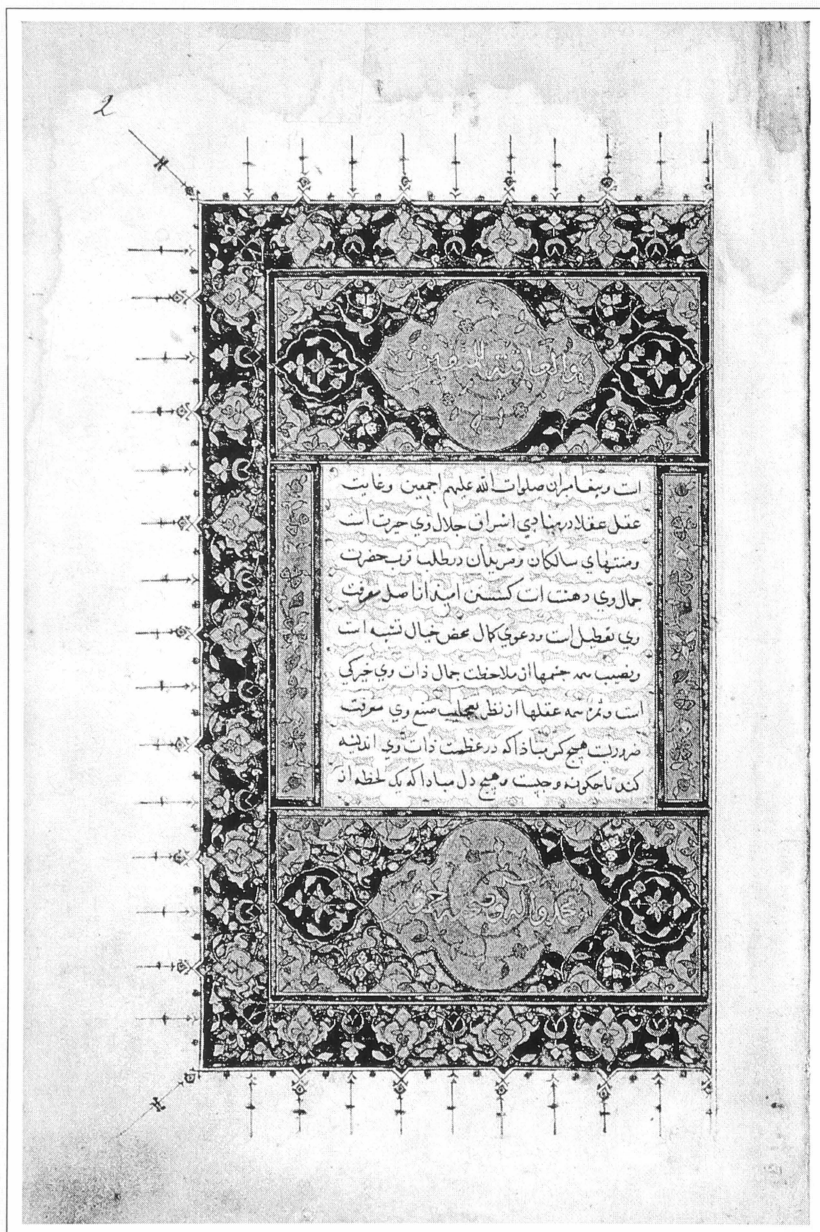 2
والعاقبة للمتقین
است وپیغامبران صلوات الله علیهم اجمعین وغایت
عقل عقلا در مبادي اشراق جلال وي حیرت است
ومنتهاي سالکان ومریدان در طلب قرب حضرت
جمال وي دهشت است کسستن امید از اصل معرفت
وي تعطیل است ودعوي کمال محض خیال تشبیه است
ونصیب همه چشمها از ملاحظت جمال ذات وي خیرکي
است وثمرۀ همه عقلها از نظر بعجایب صنع وي معرفت
ضروریست هیچ کس مباذا که در عظمت ذات وي اندیشه
کند تا چکونه وچیست وهیچ دل مبادا که یک لحظه از
محمد وآله